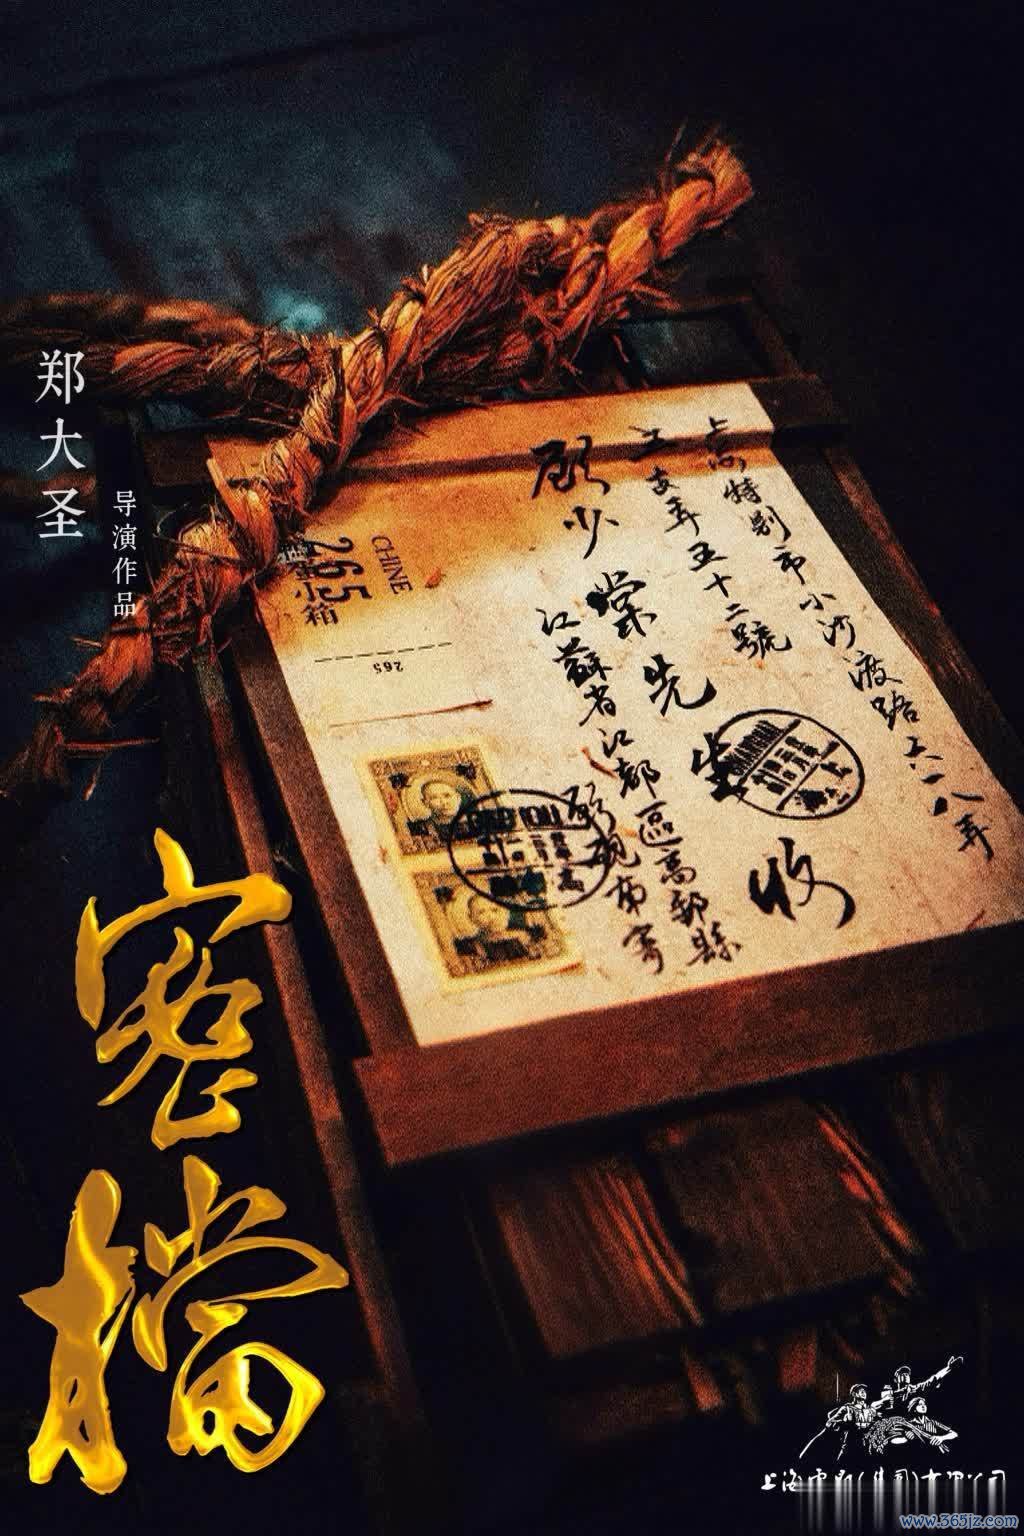 郑大圣
导演作品
上海特别市小沙渡路六一八弄
五十二號
顾少棠先生
收
江蘇省江都區高郵縣
CHINE
265
箱
265
密檔
上海电影(集团)有限公司
www.365jz.com